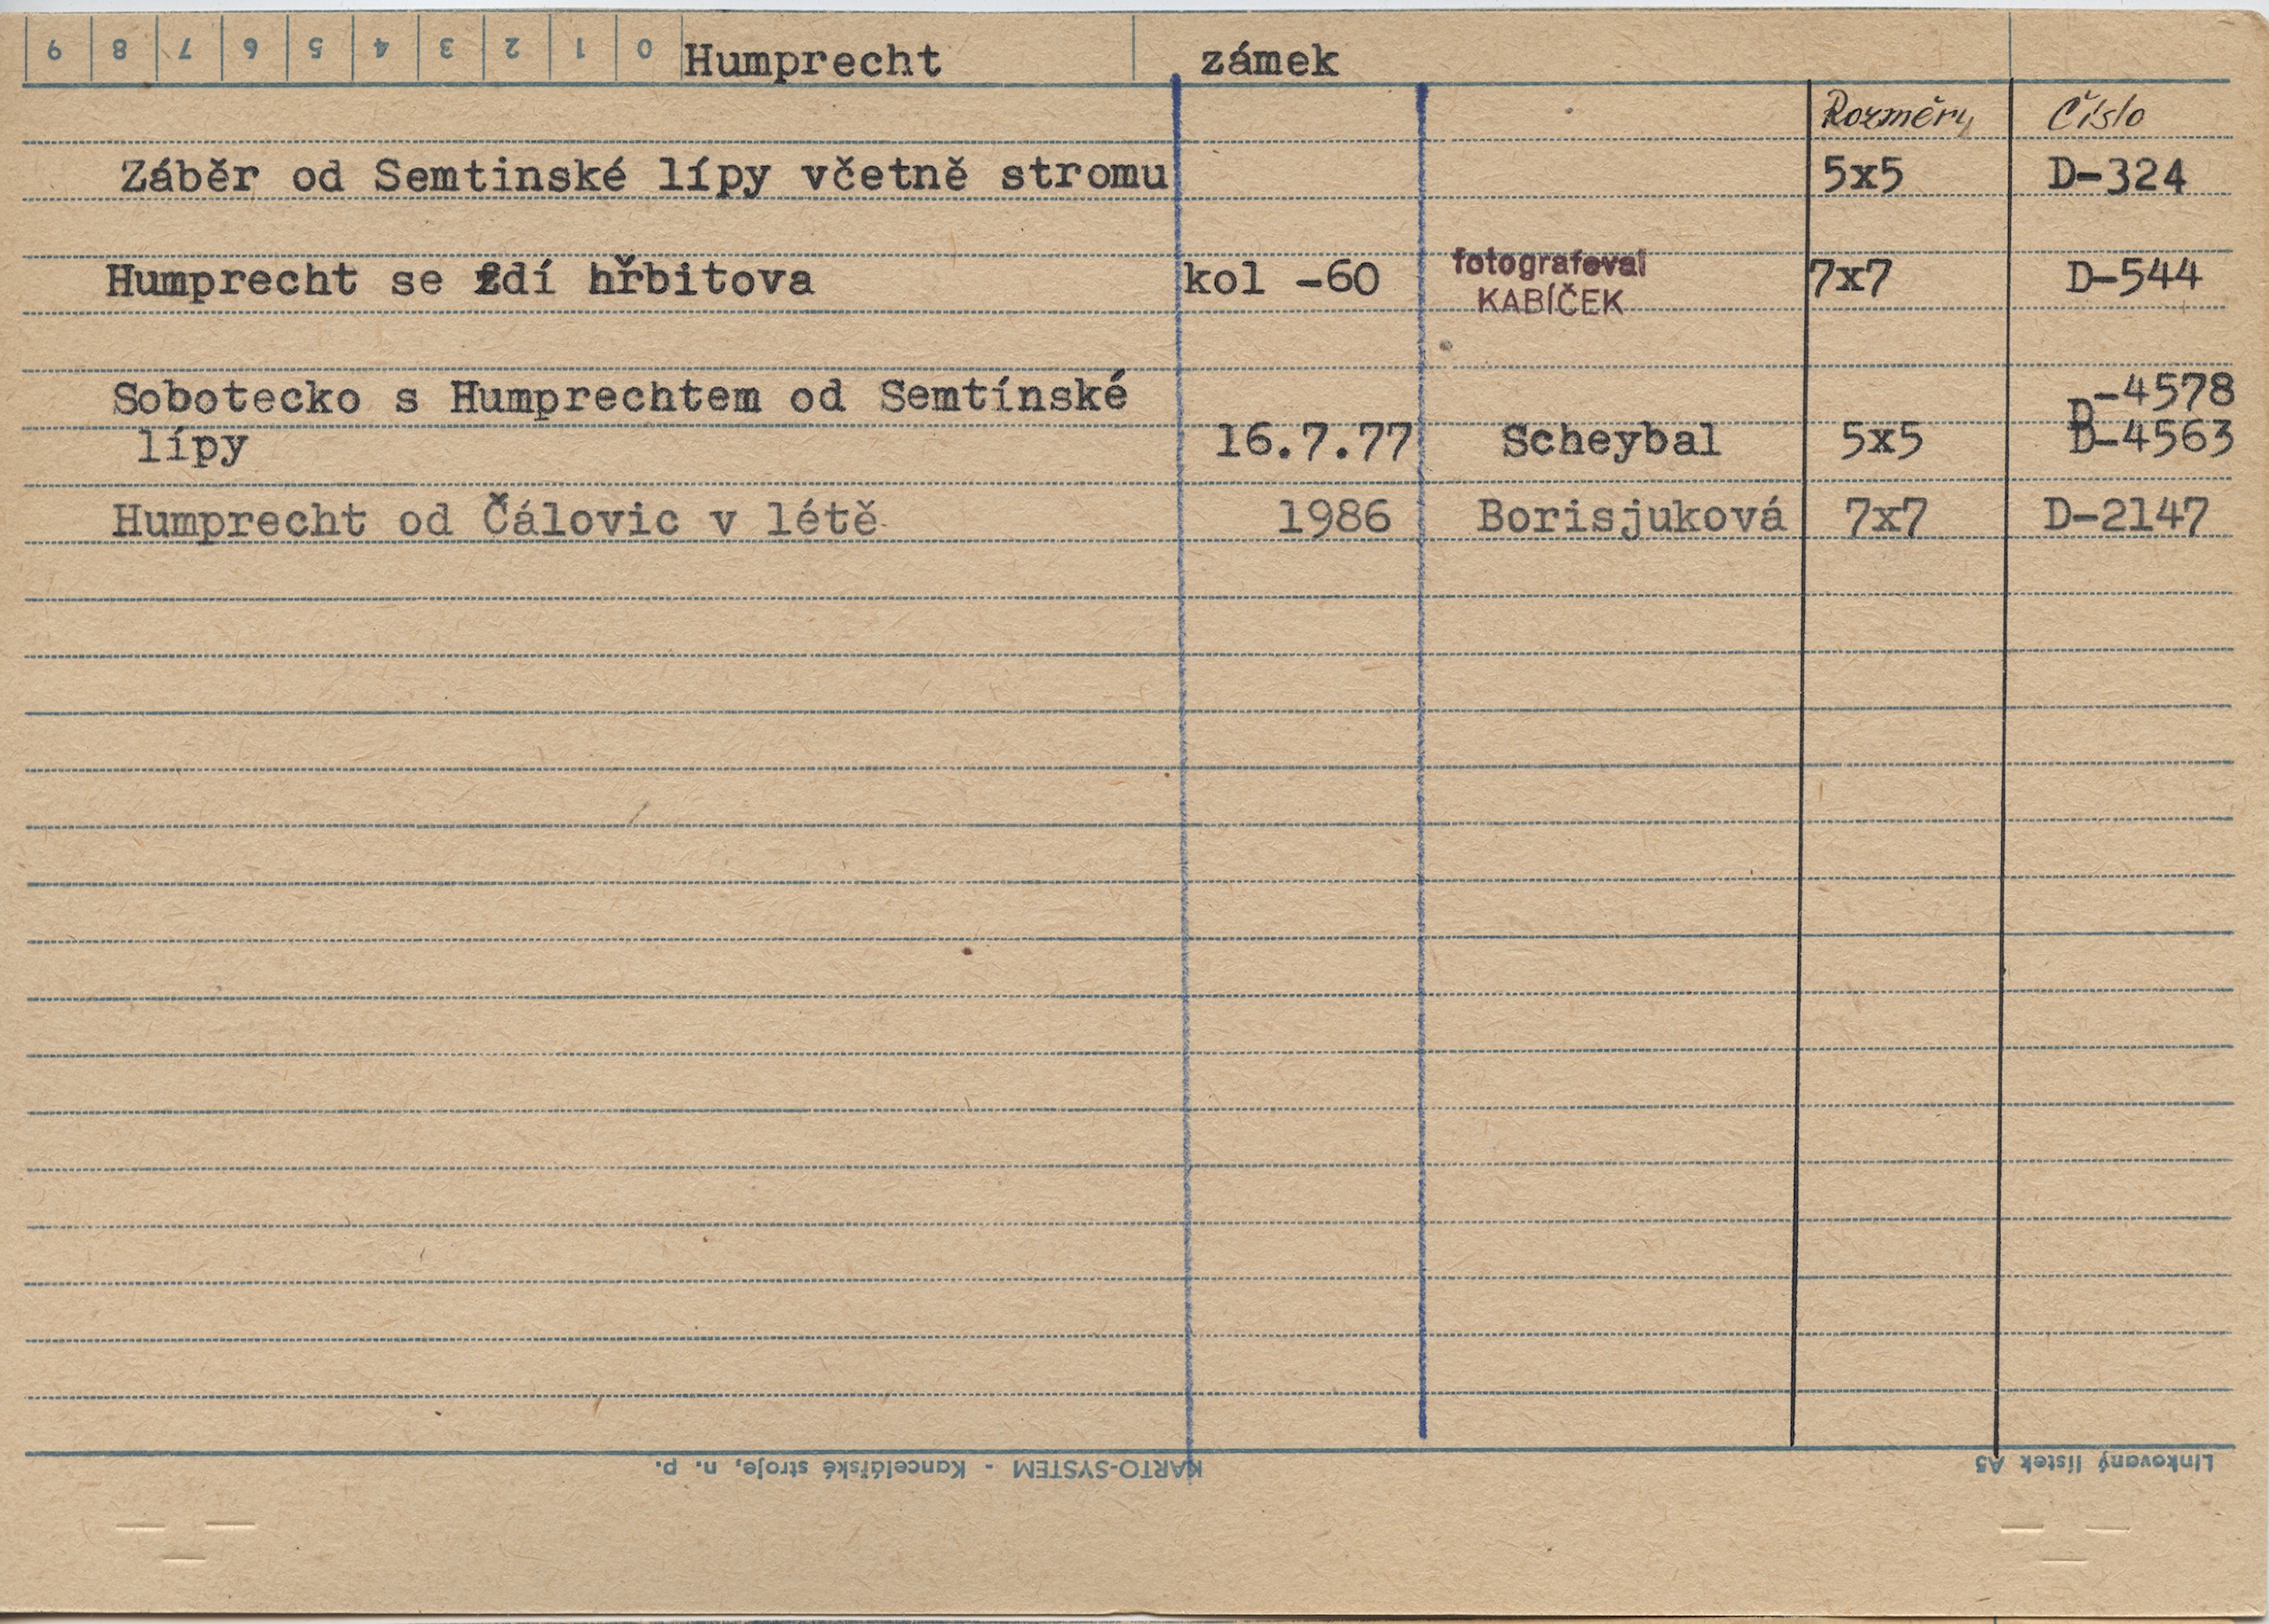 9 8 7 6 5 4 3 2 1 0 Humprecht zámek
Rozměry Číslo
Záběr od Semtinské lípy včetně stromu 5x5 D-324
Humprecht se zdí hřbitova kol -60 fotografoval 7x7 D-544
KABÍČEK
Sobotecko s Humprechtem od Semtínské D-4578
lípy 16.7.77 Scheybal 5x5 D-4563
Humprecht od Čálovic v létě 1986 Borisjuková 7x7 D-2147
KARTO-SYSTEM - Kancelářské stroje, n. p.
Linkovaný lístek A5